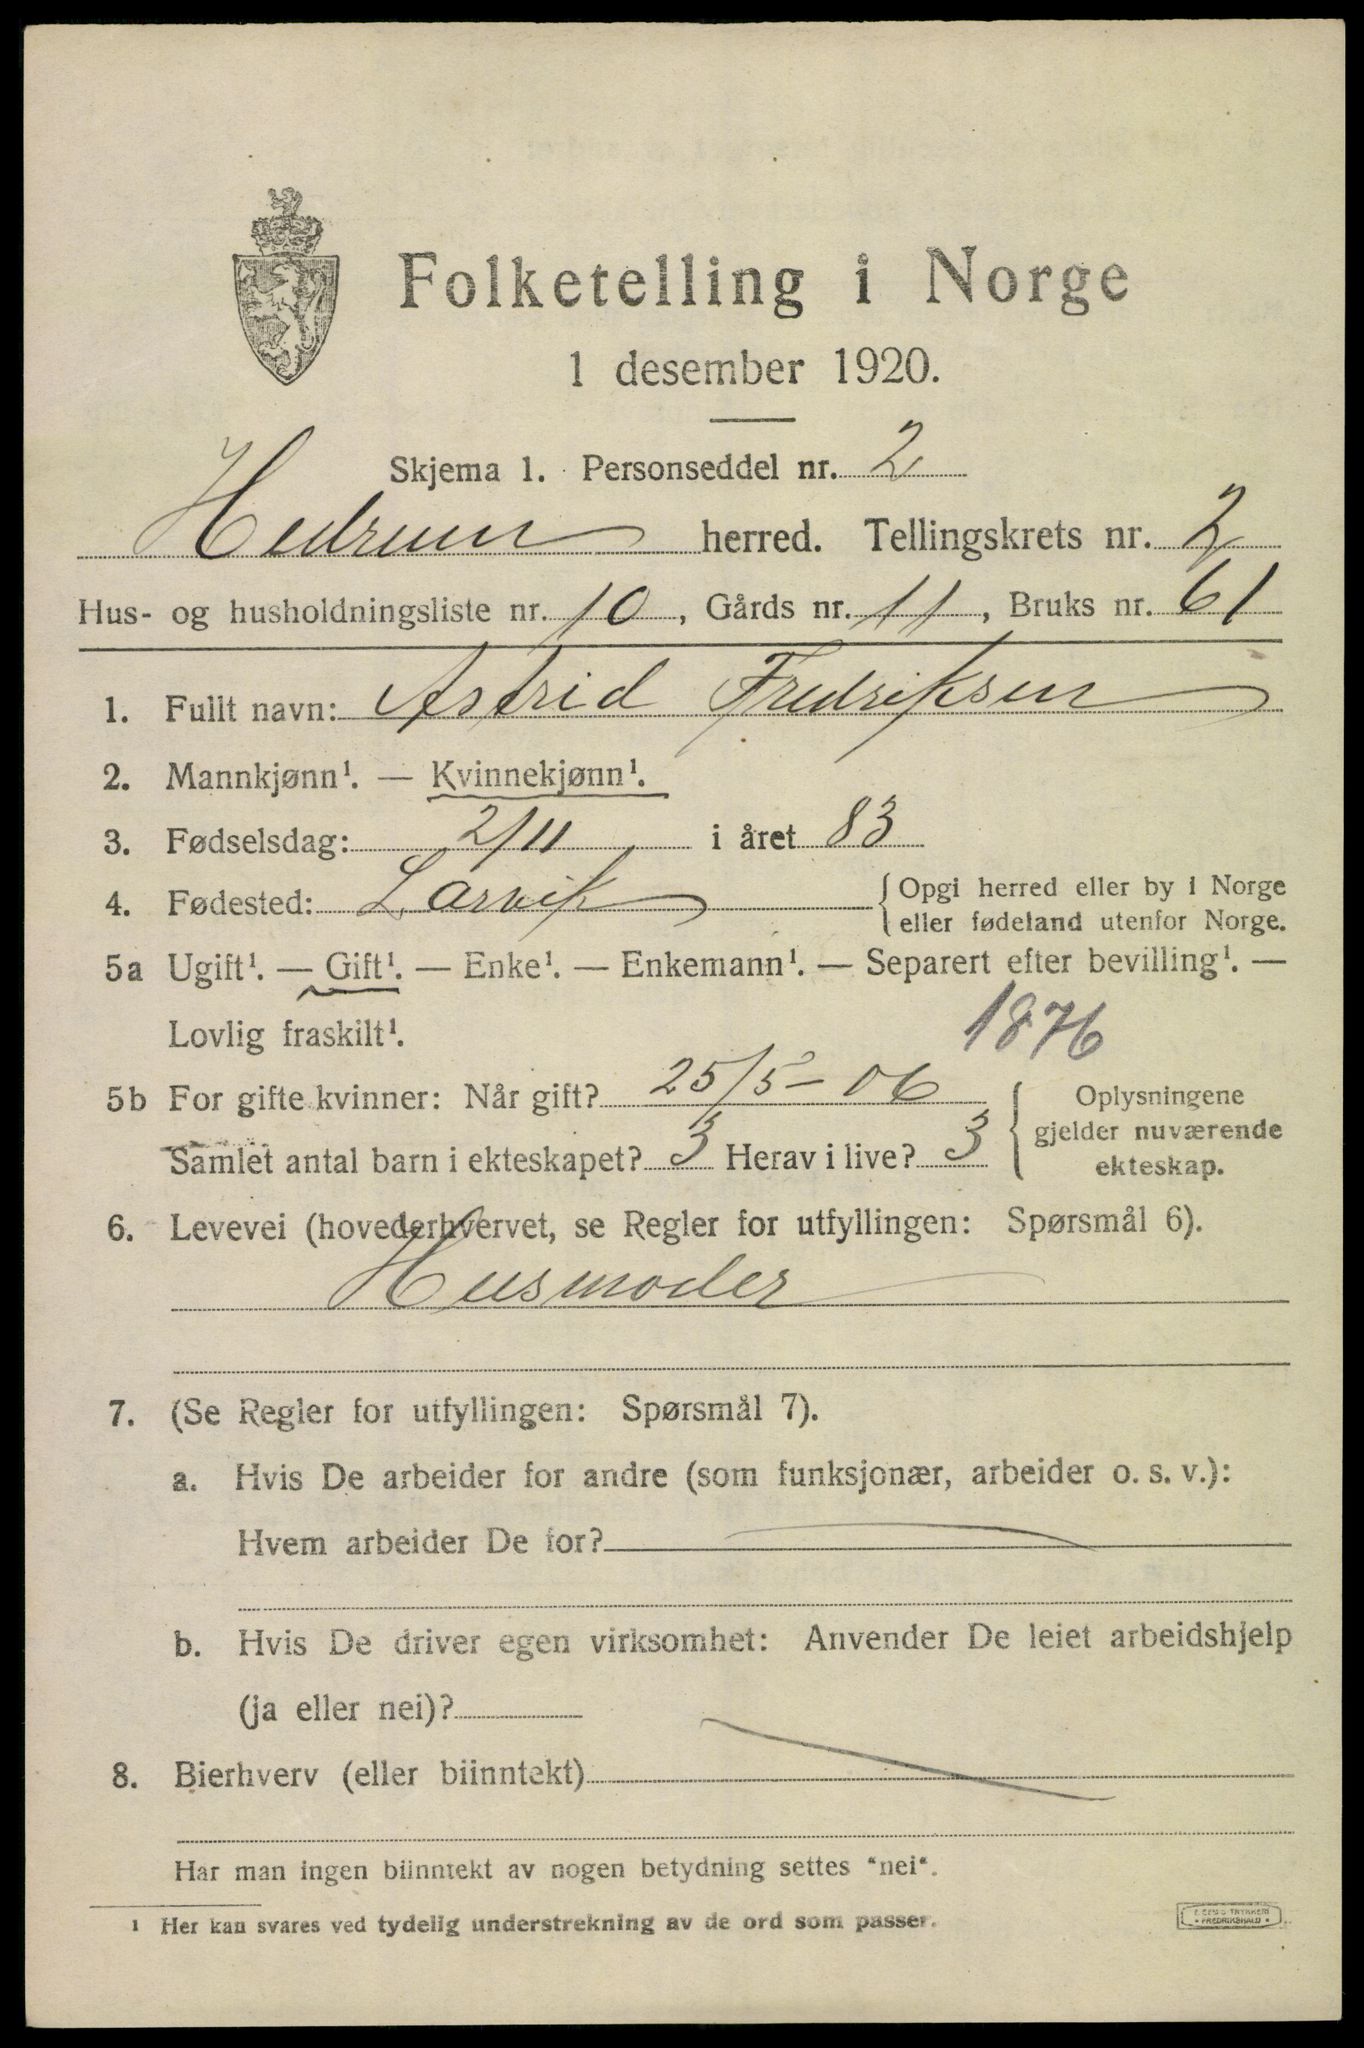 Folketelling i Norge
1 desember 1920.
Skjema 1. Personseddel nr. 2
Hedrum herred. Tellingskrets nr. 2
Hus- og husholdningsliste nr. 10, Gårds nr. 11, Bruks nr. 61
1. Fullt navn: Astrid Fredriksen
2. Mannkjønn¹. — Kvinnekjønn¹.
3. Fødselsdag: 2/11 i året 83
4. Fødested: Larvik { Opgi herred eller by i Norge
eller fødeland utenfor Norge.
5a Ugift¹. — Gift¹. — Enke¹. — Enkemann¹. — Separert efter bevilling¹. —
Lovlig fraskilt¹. 1876
5b For gifte kvinner: Når gift? 25/5 - 06 { Oplysningene
gjelder nuværende
Samlet antal barn i ekteskapet? 3 Herav i live? 3
ekteskap.
6. Levevei (hovederhvervet, se Regler for utfyllingen: Spørsmål 6).
Husmoder
7. (Se Regler for utfyllingen: Spørsmål 7).
a. Hvis De arbeider for andre (som funksjonær, arbeider o. s. v.):
Hvem arbeider De for?
b. Hvis De driver egen virksomhet: Anvender De leiet arbeidshjelp
(ja eller nei)?
8. Bierhverv (eller biinntekt)
Har man ingen biinntekt av nogen betydning settes "nei".
¹ Her kan svares ved tydelig understrekning av de ord som passer.
TRYKKERI
FREDRIKSHALD